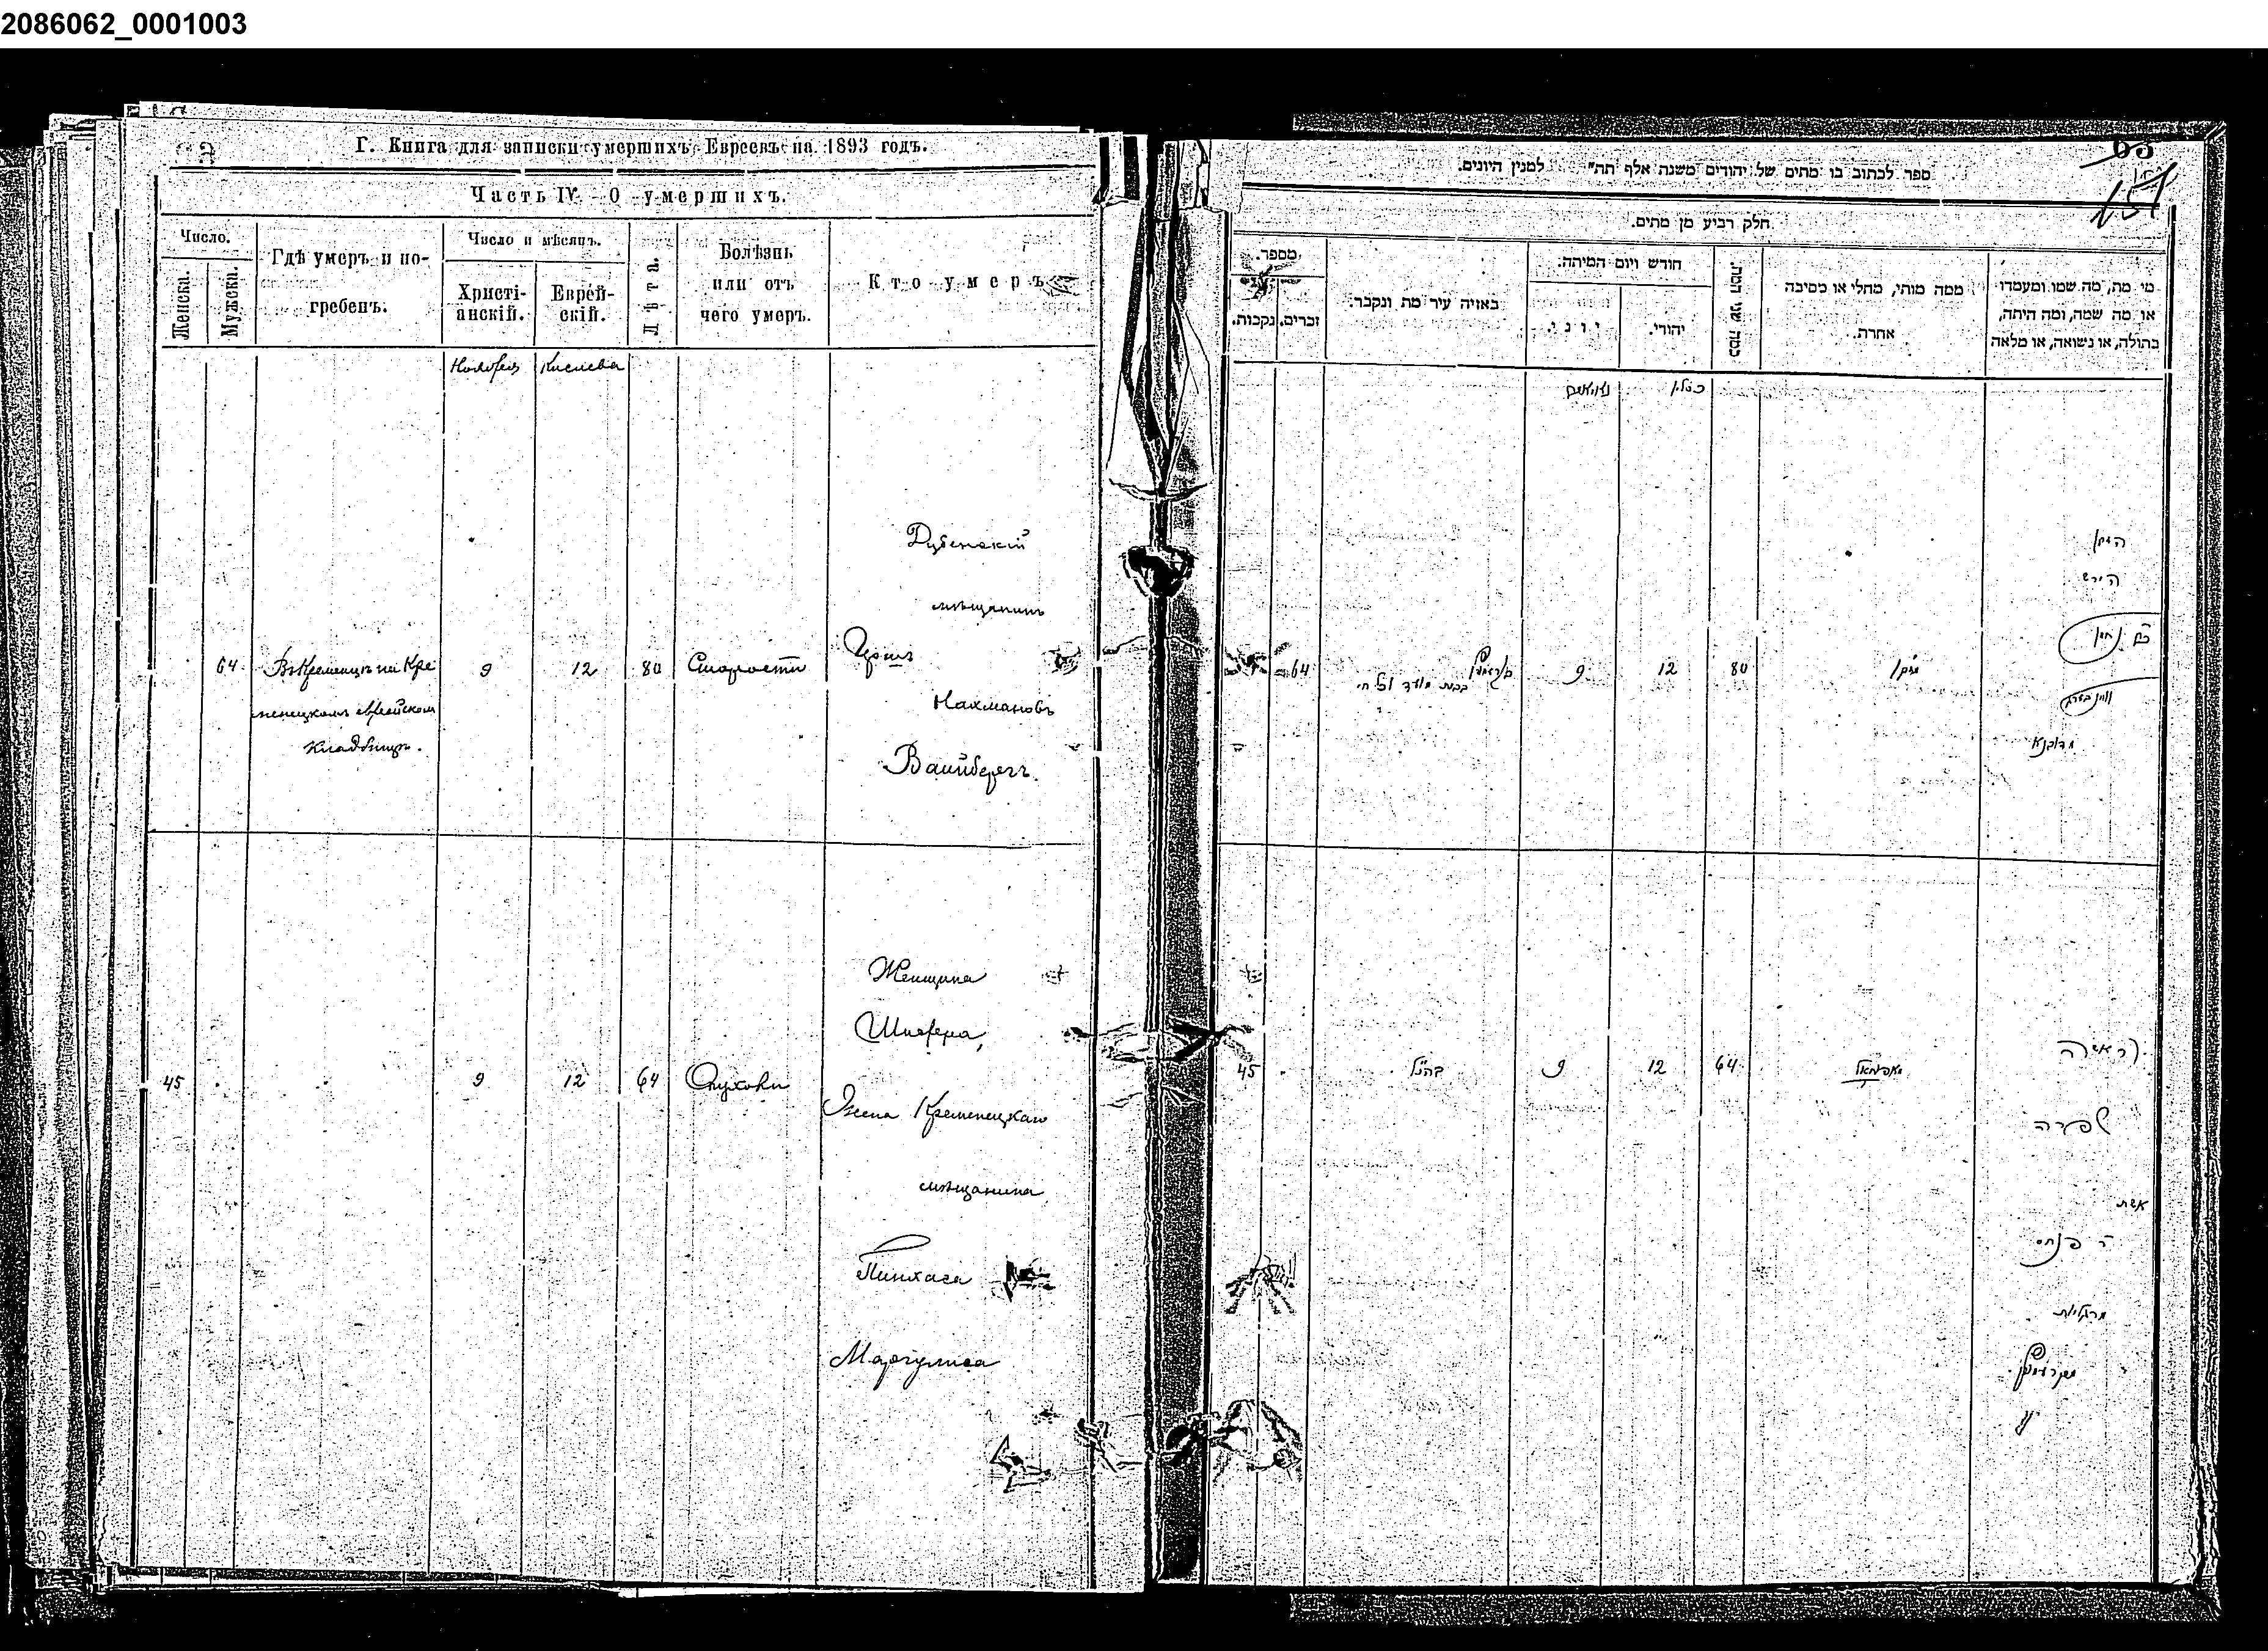 2086062_0001003
Г. Книга для записки умершихъ Евреевъ на 1893 годъ.
Часть IV. О умершихъ.
Число.
Женска.
Мужска.
Гдѣ умеръ и по-
гребенъ.
Число и мѣсяцъ.
Христі-
анскій.
Еврей-
скій.
Лѣта.
Болѣзнь
или отъ
чего умеръ.
Кто умеръ
Ноября
Кислева
64
ВъКременцѣ на Кре
менецкомъ еврейском
кладбищѣ.
9
12
80
Старости
Дубенскій
мѣщанинъ
Герша
Нахмановъ
Вайнбергъ.
45
9
12
64
Опухоли
Женщина
Шпефра,
Жена Кременецкаго
мѣщанина
Пинхаса
Маргулиса
63
151
ספר לכתוב בו מתים של יהודים משנת אלף תת" למנין היונים.
חלק רביע מן מתים.
מספר.
זכרים.
נקבות.
באיזה עיר מת ונקבר.
חודש ויום המיתה.
יוני.
יהודי.
כמה שני המת.
ממה מותו, מחלי או מסיבה
אחרת.
מי מת, מה שמו ומעמדו
או מה שמה, ומה היתה,
בתולה, או נשואה, או מלאה
כסלו
64
9
12
80
מזקן
הירש
נחמן
מדובנא
45
כהנ"ל
9
12
64
האשה
שפרה
אשת
ר פנחס
מרגליות